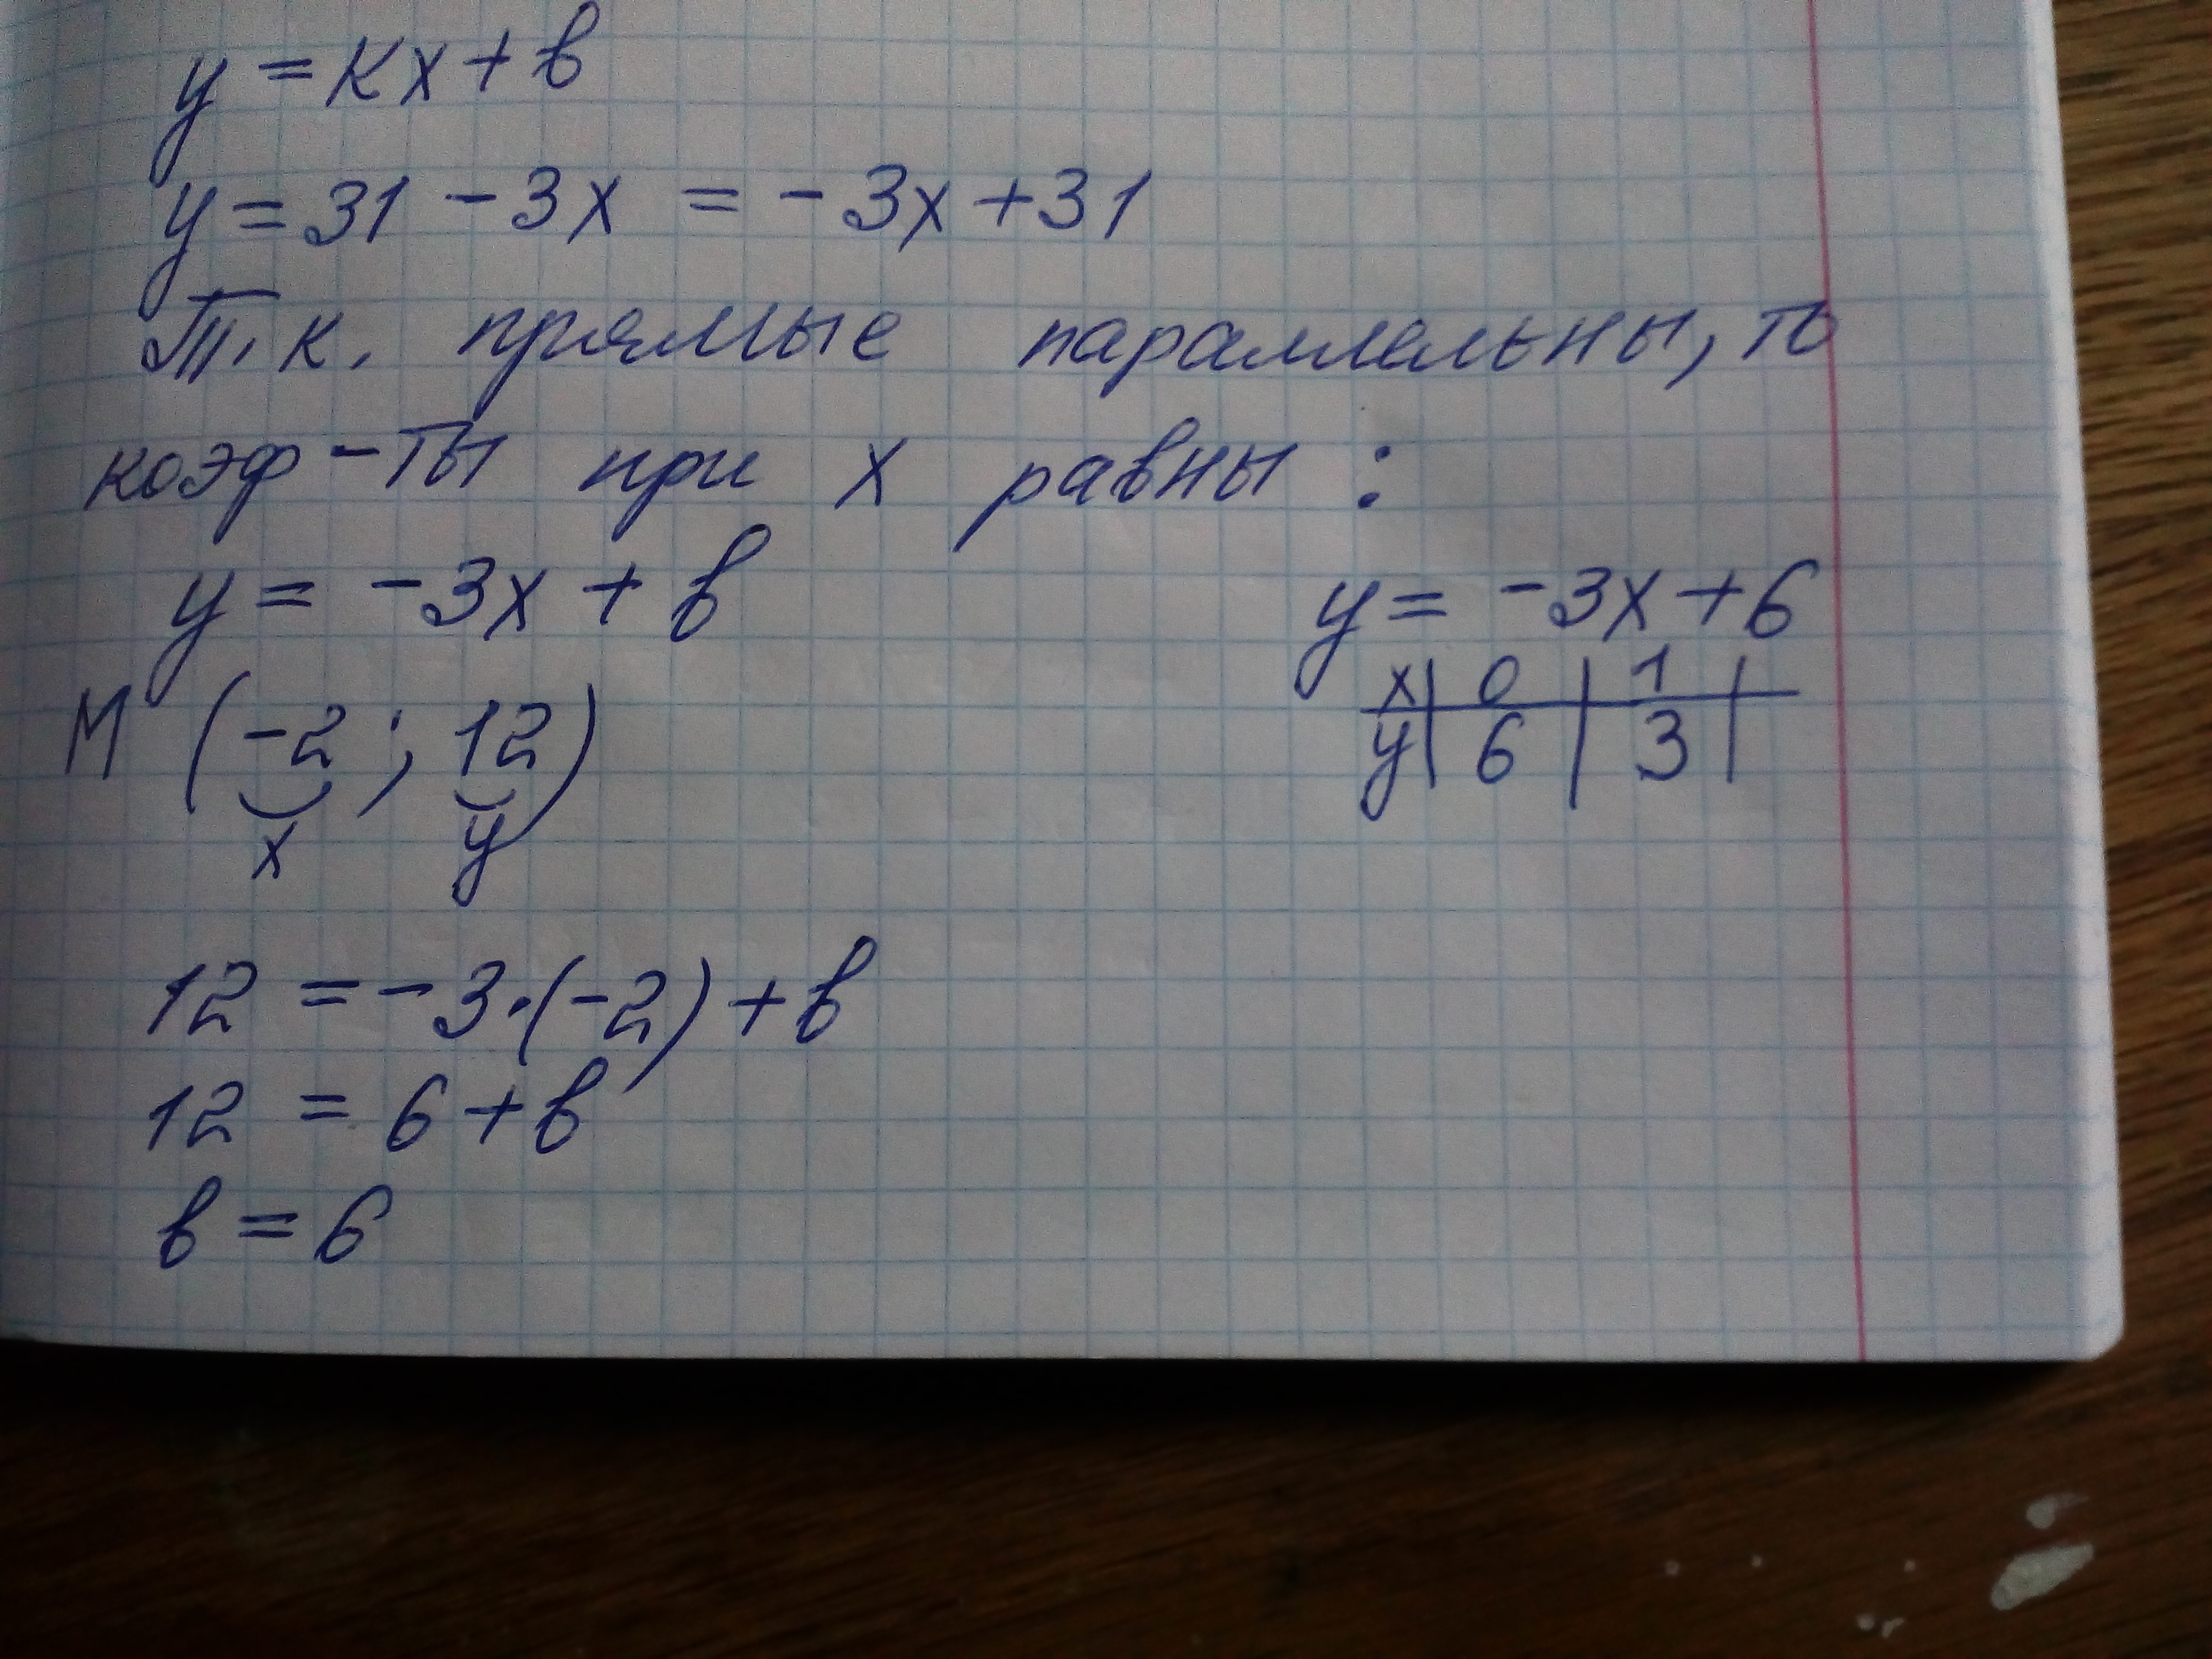 y = кx + в
y = 31 - 3x = -3x + 31
Т.к. прямые параллельны, то
коэф-ты при x равны:
y = -3x + в
M (-2; 12)
x y
12 = -3·(-2) + в
12 = 6 + в
в = 6
y = -3x + 6
x | 0 | 1 |
y | 6 | 3 |